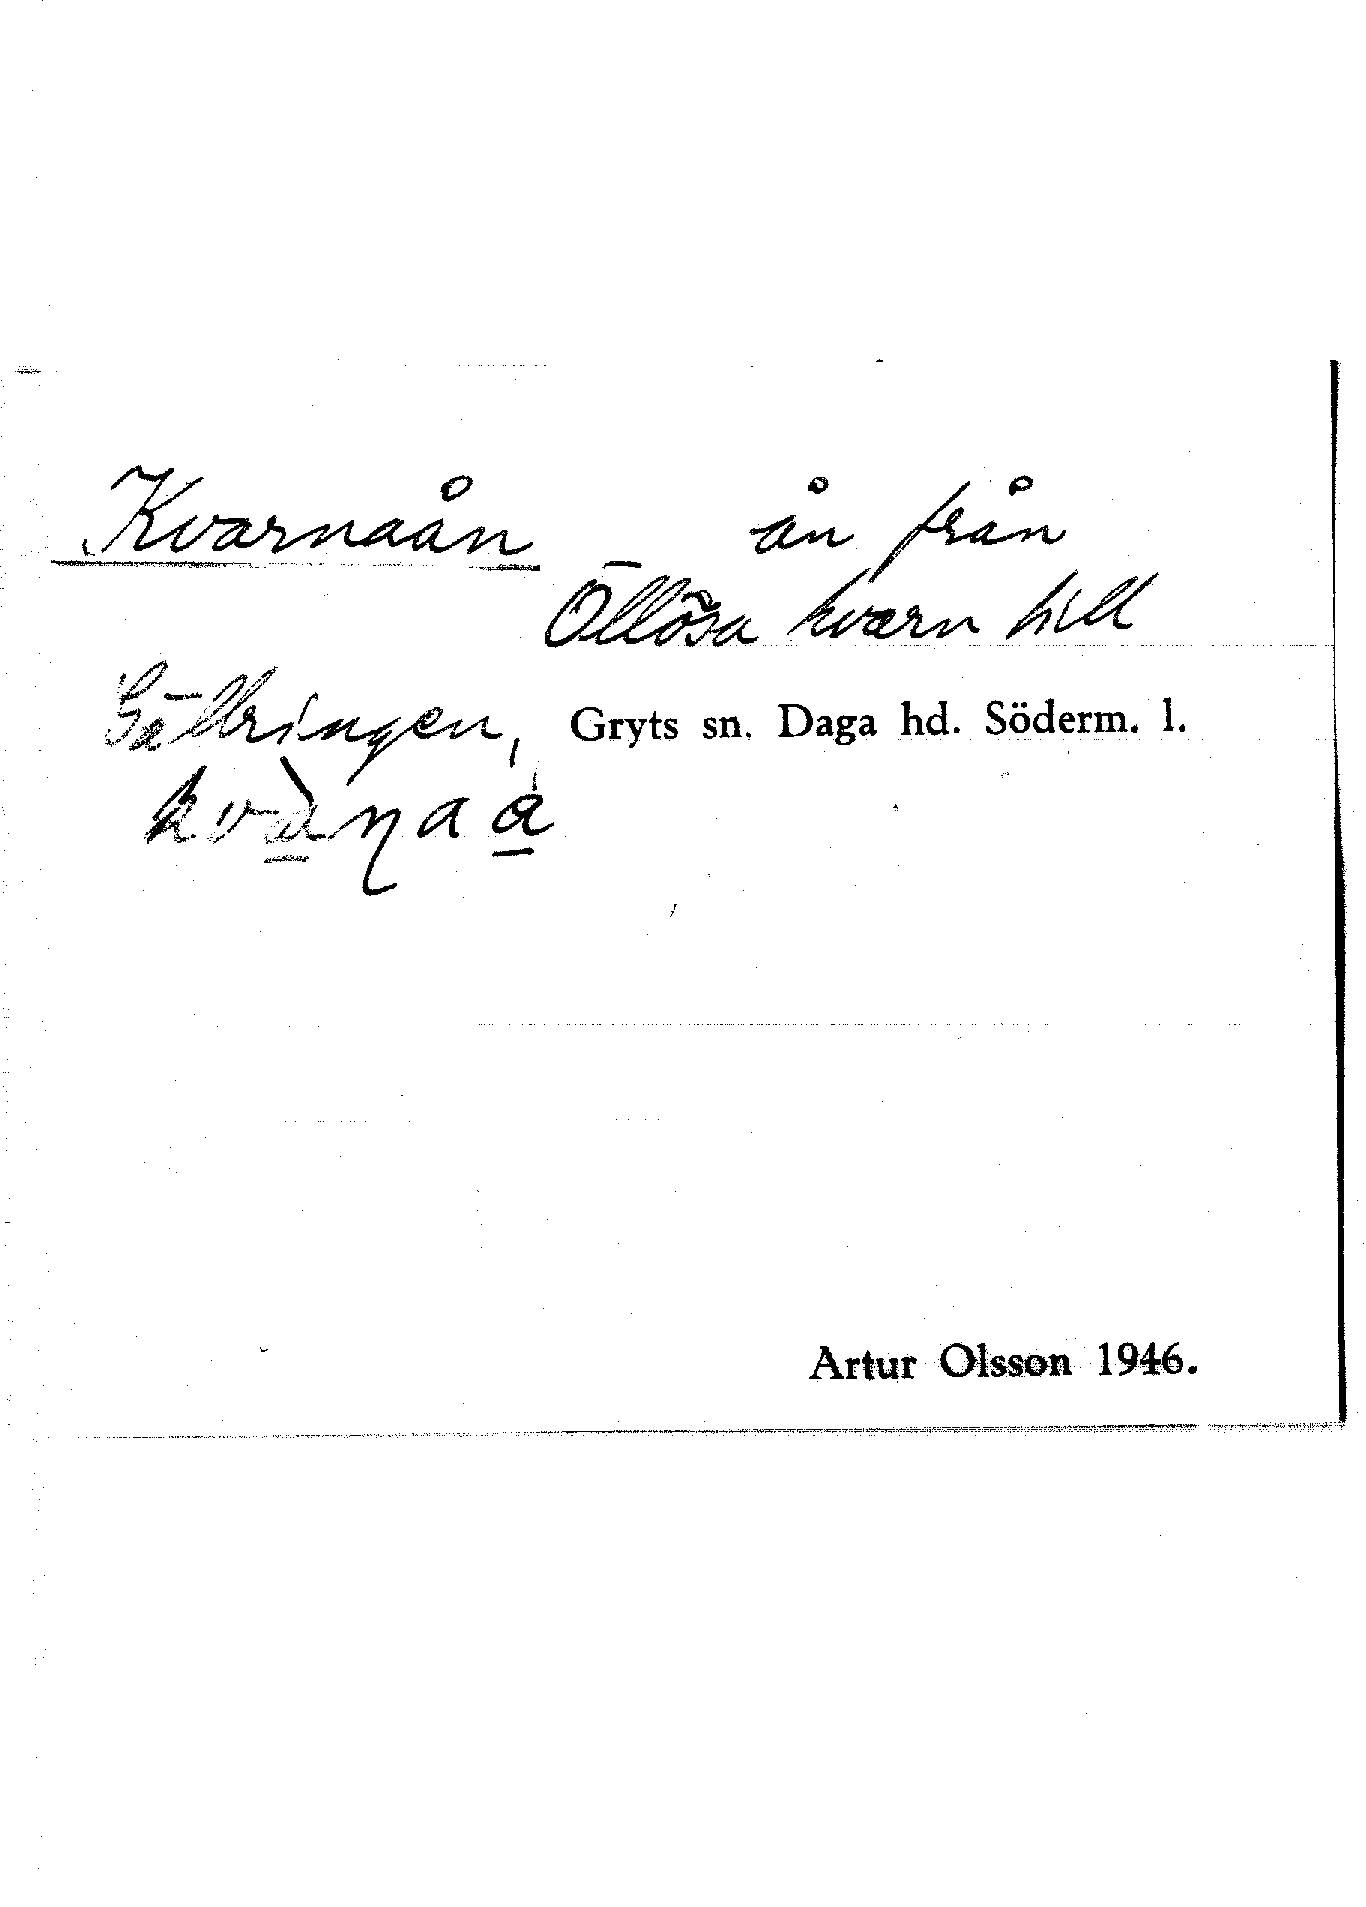 Kvarnaån ån från
Öllösa kvarn till
Sällringen, Gryts sn. Daga hd. Söderm. l.
Artur Olsson 1946.